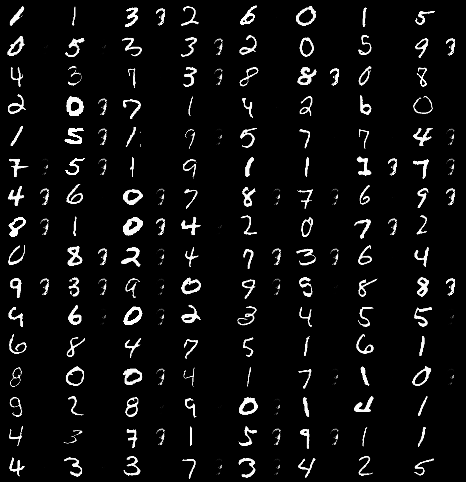 1 1 3 3 2 6 0 1 5
0 5 3 3 3 2 0 5 9 3
4 3 7 3 3 8 8 3 0 8
2 0 3 7 1 4 2 6 0
1 5 3 1 9 5 7 7 4 3
7 5 3 1 9 1 1 1 3 7 3
4 3 6 0 3 7 8 3 7 3 6 9 3
8 3 1 0 3 4 2 0 7 3 2
0 8 3 2 3 4 7 3 3 3 6 4
9 3 3 3 9 3 0 9 3 5 8 8 3
9 6 0 2 3 4 5 5
6 8 4 7 5 1 6 1
8 0 0 3 4 1 7 1 0
9 2 8 9 0 1 1
4 3 7 3 1 5 3 9 3 1 1
4 3 3 7 3 3 4 2 5